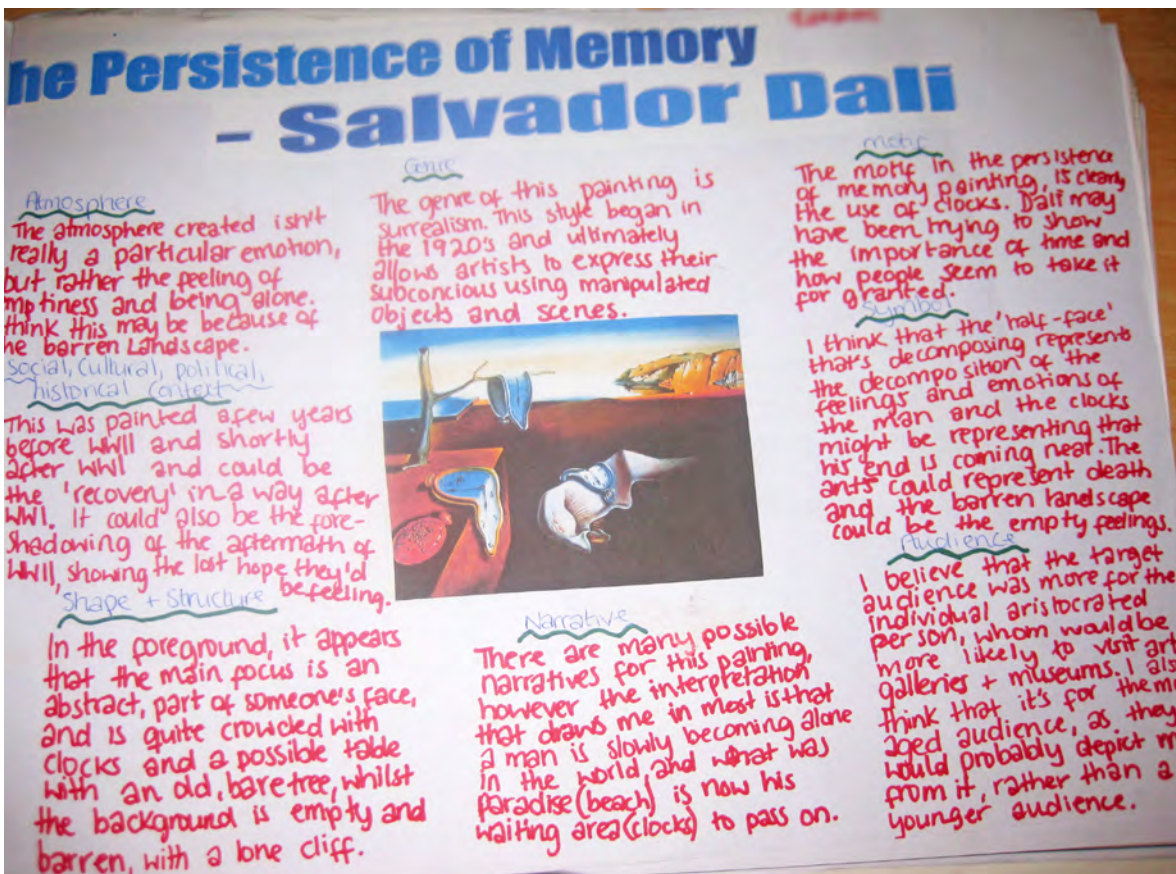 he Persistence of Memory
- Salvador Dali
Atmosphere
The atmosphere created isn't
really a particular emotion,
but rather the feeling of
mptiness and being alone.
think this may be because of
he barren Landscape.
Social, Cultural, political,
historical Context
This was painted a few years
before WWII and shortly
after WWI and could be
the 'recovery' in a way after
WWI. It could also be the fore-
shadowing of the aftermath of
WWII, showing the lost hope they'd
be feeling.
Shape + Structure
In the foreground, it appears
that the main focus is an
abstract, part of someone's face,
and is quite crowded with
clocks and a possible table
with an old, bare tree, whilst
the background is empty and
barren, with a lone cliff.
Genre
The genre of this painting is
surrealism. This style began in
the 1920's and ultimately
allows artists to express their
subconcious using manipulated
objects and scenes.
Narrative
There are many possible
narratives for this painting,
however the interpretation
that draws me in most is that
a man is slowly becoming alone
in the world, and what was
paradise (beach) is now his
waiting area (clocks) to pass on.
Motif
The motif in the persistence
of memory painting, is clearly
the use of clocks. Dali may
have been trying to show
the importance of time and
how people seem to take it
for granted.
Symbol
I think that the 'half-face'
that's decomposing represents
the decomposition of the
feelings and emotions of
the man and the clocks
might be representing that
his end is coming near. The
ants could represent death
and the barren landscape
could be the empty feelings.
Audience
I believe that the target
audience was more for the
individual aristocrated
person, whom would be
more likely to visit ar
galleries + museums. I als
think that it's for the mi
aged audience, as they
would probably depict m
from it, rather than a
younger audience.